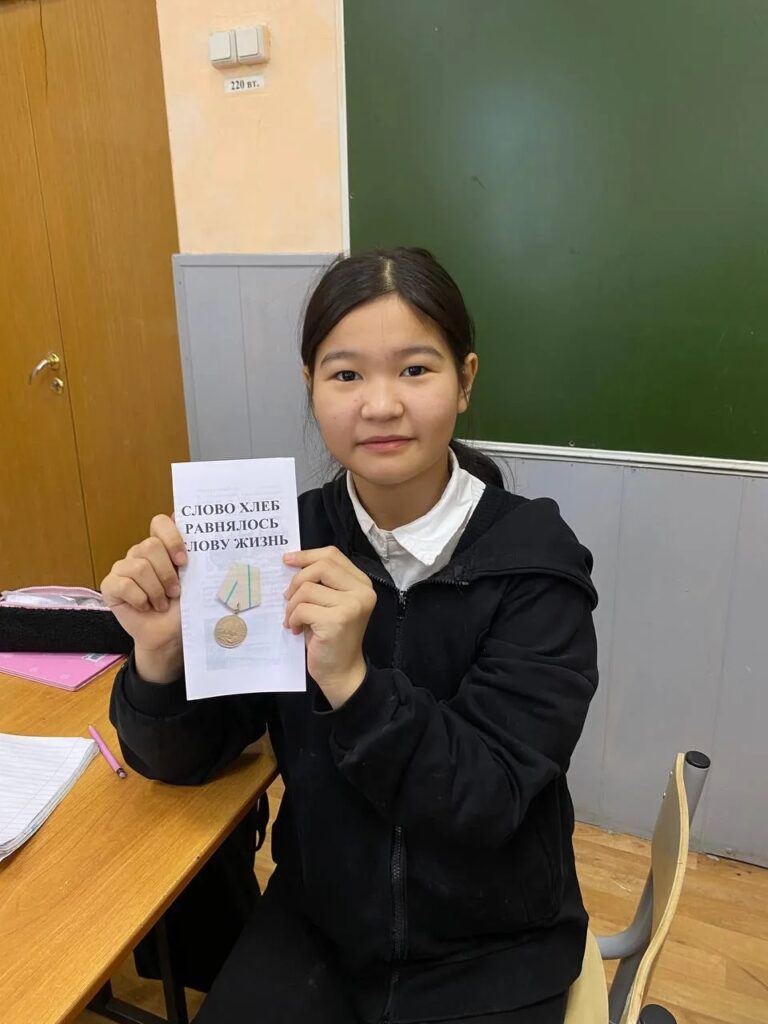 220 вт.
СЛОВО ХЛЕБ
РАВНЯЛОСЬ
СЛОВУ ЖИЗНЬ